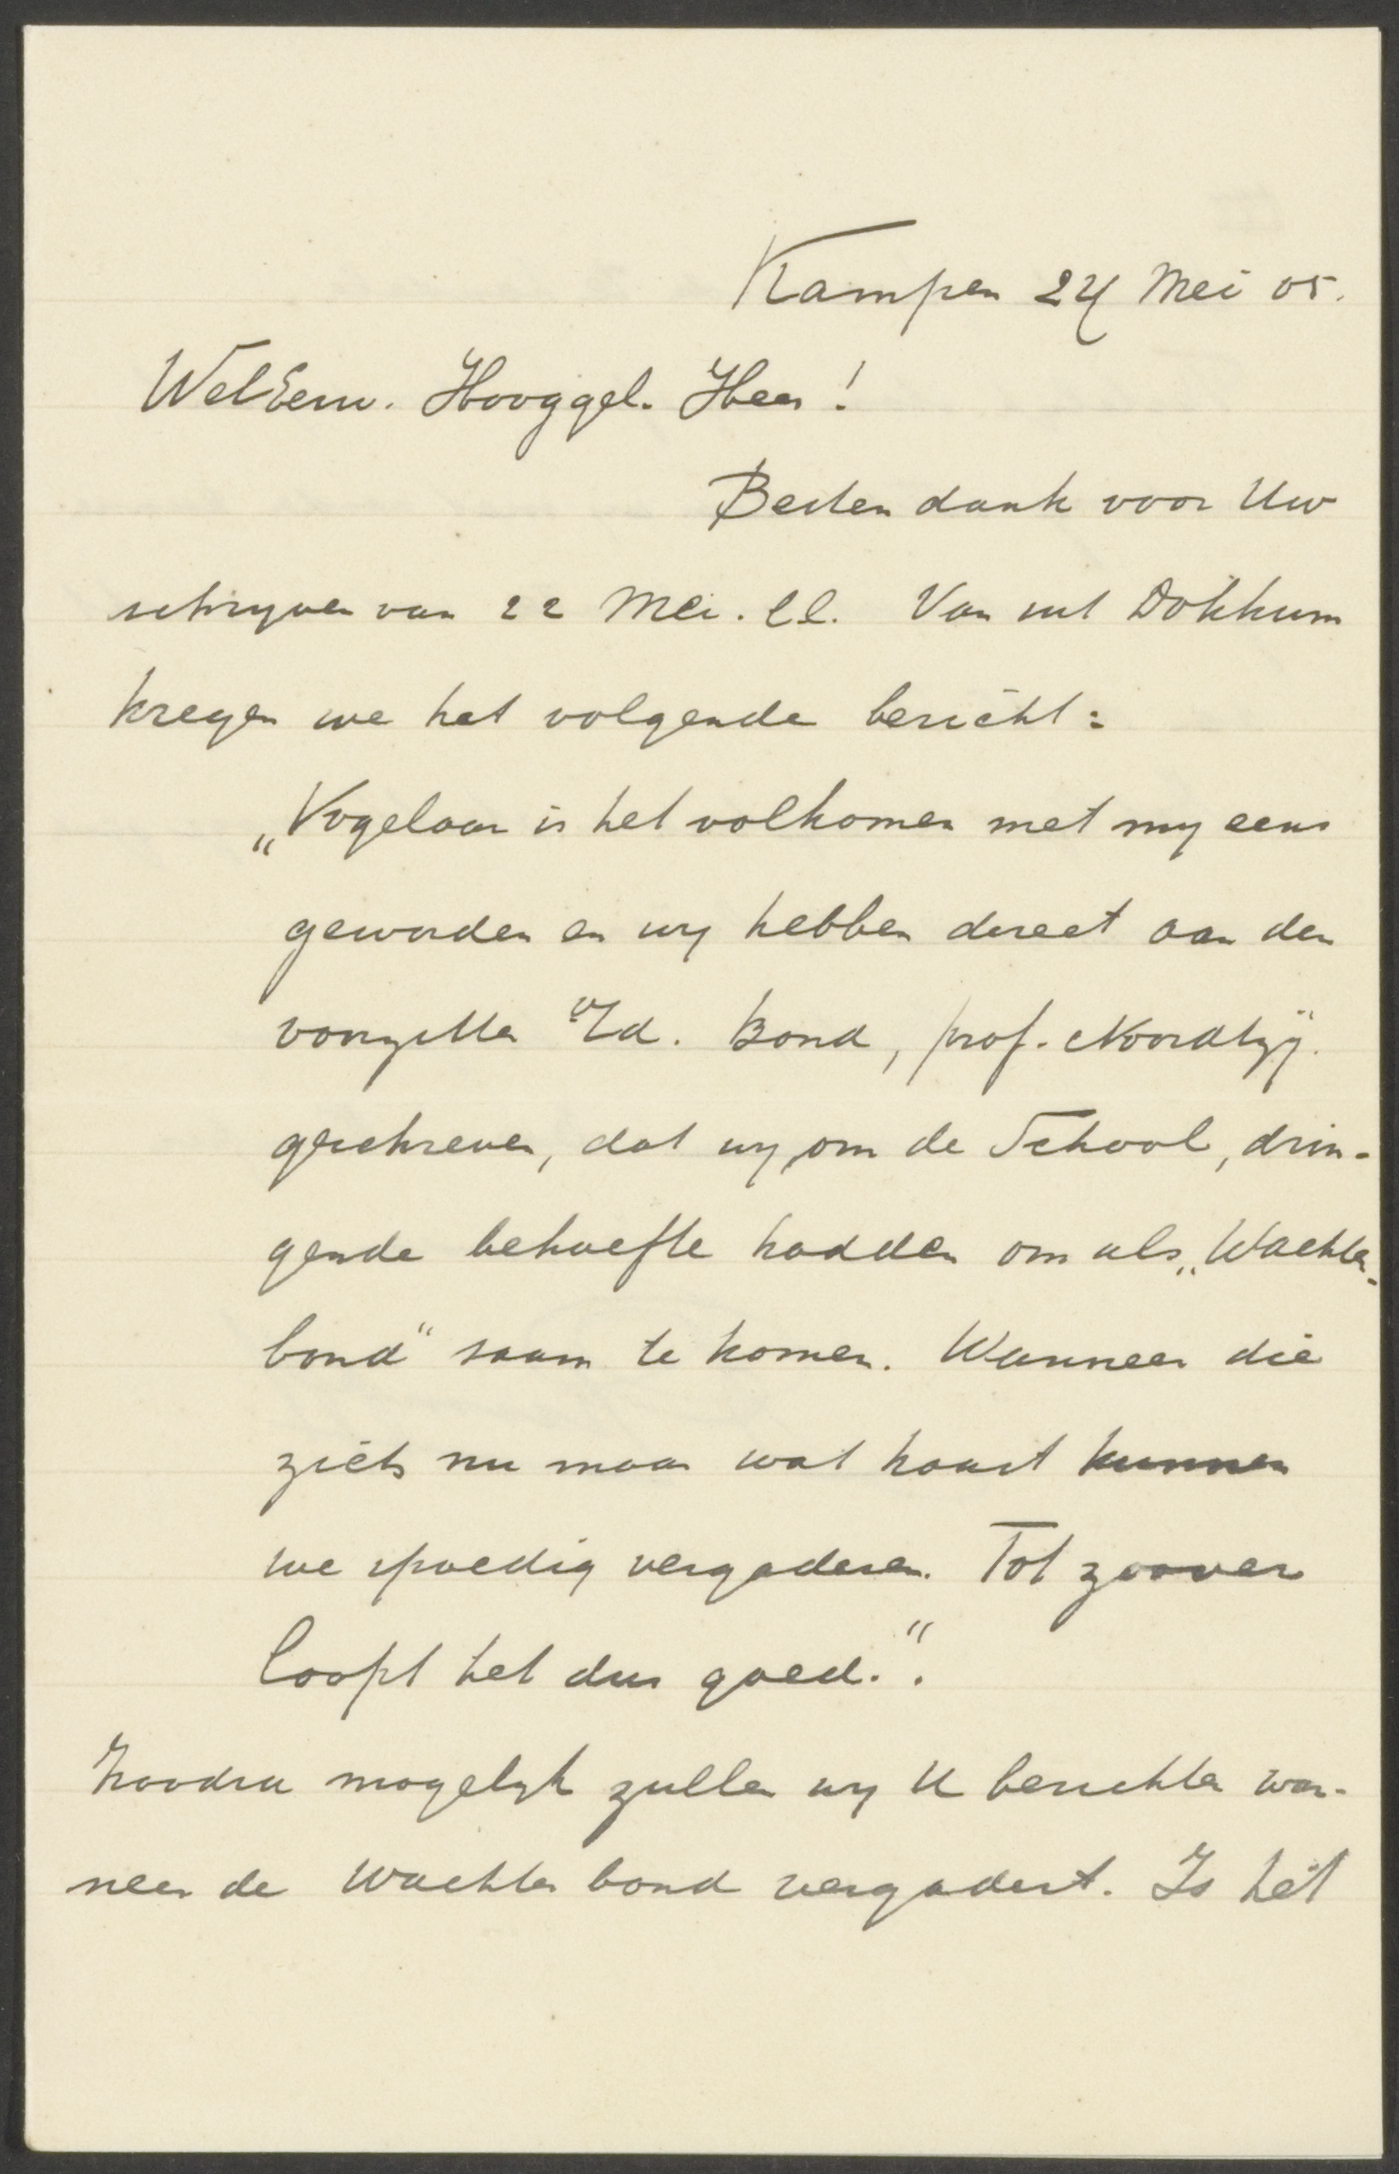 Kampen 24 Mei 05.
WelEerw. Hooggel. Heer!
Besten dank voor Uw
schrijven van 22 Mei. ll. Van uit Dokkum
kregen we het volgende bericht:
„Vogelaar is het volkomen met mij eens
geworden en wij hebben direct aan den
voorzitter v/d. Bond, prof. Noordtzij.
geschreven, dat wij, om de School, drin-
gende behoefte hadden om als „Wachter-
bond" saam te komen. Wanneer die
zich nu maar wat haast kunnen
we spoedig vergaderen. Tot zoover
loopt het dus goed.".
Zoodra mogelijk zullen wij U berichten wan-
neer de Wachter bond vergadert. Is het